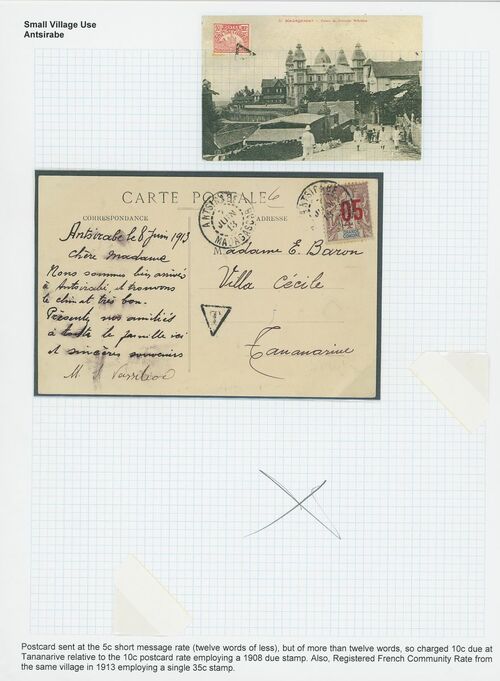 Small Village Use
Antsirabe
CARTE POSTALE
CORRESPONDANCE
ADRESSE
05
ANTSIRABE
JUIN
13
MADAGASCAR
Antsirabe le 8 Juin 1913
Chère Madame
Nous sommes bien arrivés
à Antsirabe, et trouvons
le climat très bon.
Présentez nos amitiés
à toute la famille ici
et sincères souvenirs
Madame E. Baron
Villa Cécile
Tananarive
T
Postcard sent at the 5c short message rate (twelve words of less), but of more than twelve words, so charged 10c due at
Tananarive relative to the 10c postcard rate employing a 1908 due stamp. Also, Registered French Community Rate from
the same village in 1913 employing a single 35c stamp.